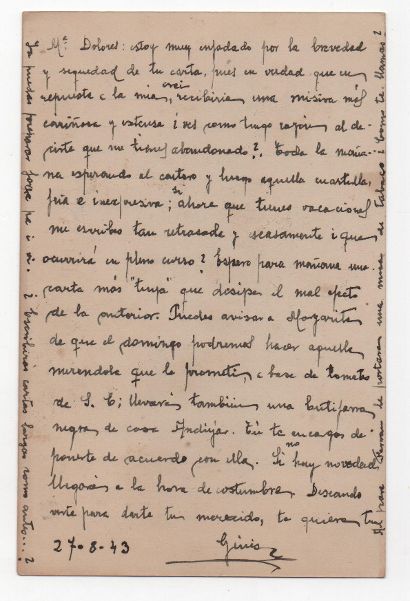 Mª Dolores: estoy muy enfadado por la brevedad
y sequedad de tu carta, pues en verdad, que en
repuesta a la mia, creí recibiria una misiva más
cariñosa y extensa ¿ves como tengo razón al de-
cirte que me tienes abandonado? Toda la maña-
na esperando al cartero y luego aquella cuartilla,
fria e inexpresiva; si ahora que tienes vacaciones
me escribes tan retrasada y escasamente ¿que
ocurrirá en pleno curso? Espero para mañana una
carta más "tuya" que disipe el mal efecto
de la anterior. Puedes avisar a Margarita
de que el domingo podremos hacer aquella
merendola que le prometí, a base de tomates
de S. C; llevará tambien una butifarra
negra de casa Tú te encargas de
ponerte de acuerdo con ella. Si no hay novedad
llegaré a la hora de costumbre. Deseando
verte para darte tu merecido, te quiere tu
Ginis
27-8-43
Ya puedes
¿Escribirás cartas largas como
de tabaco? ¿Como te llamas?